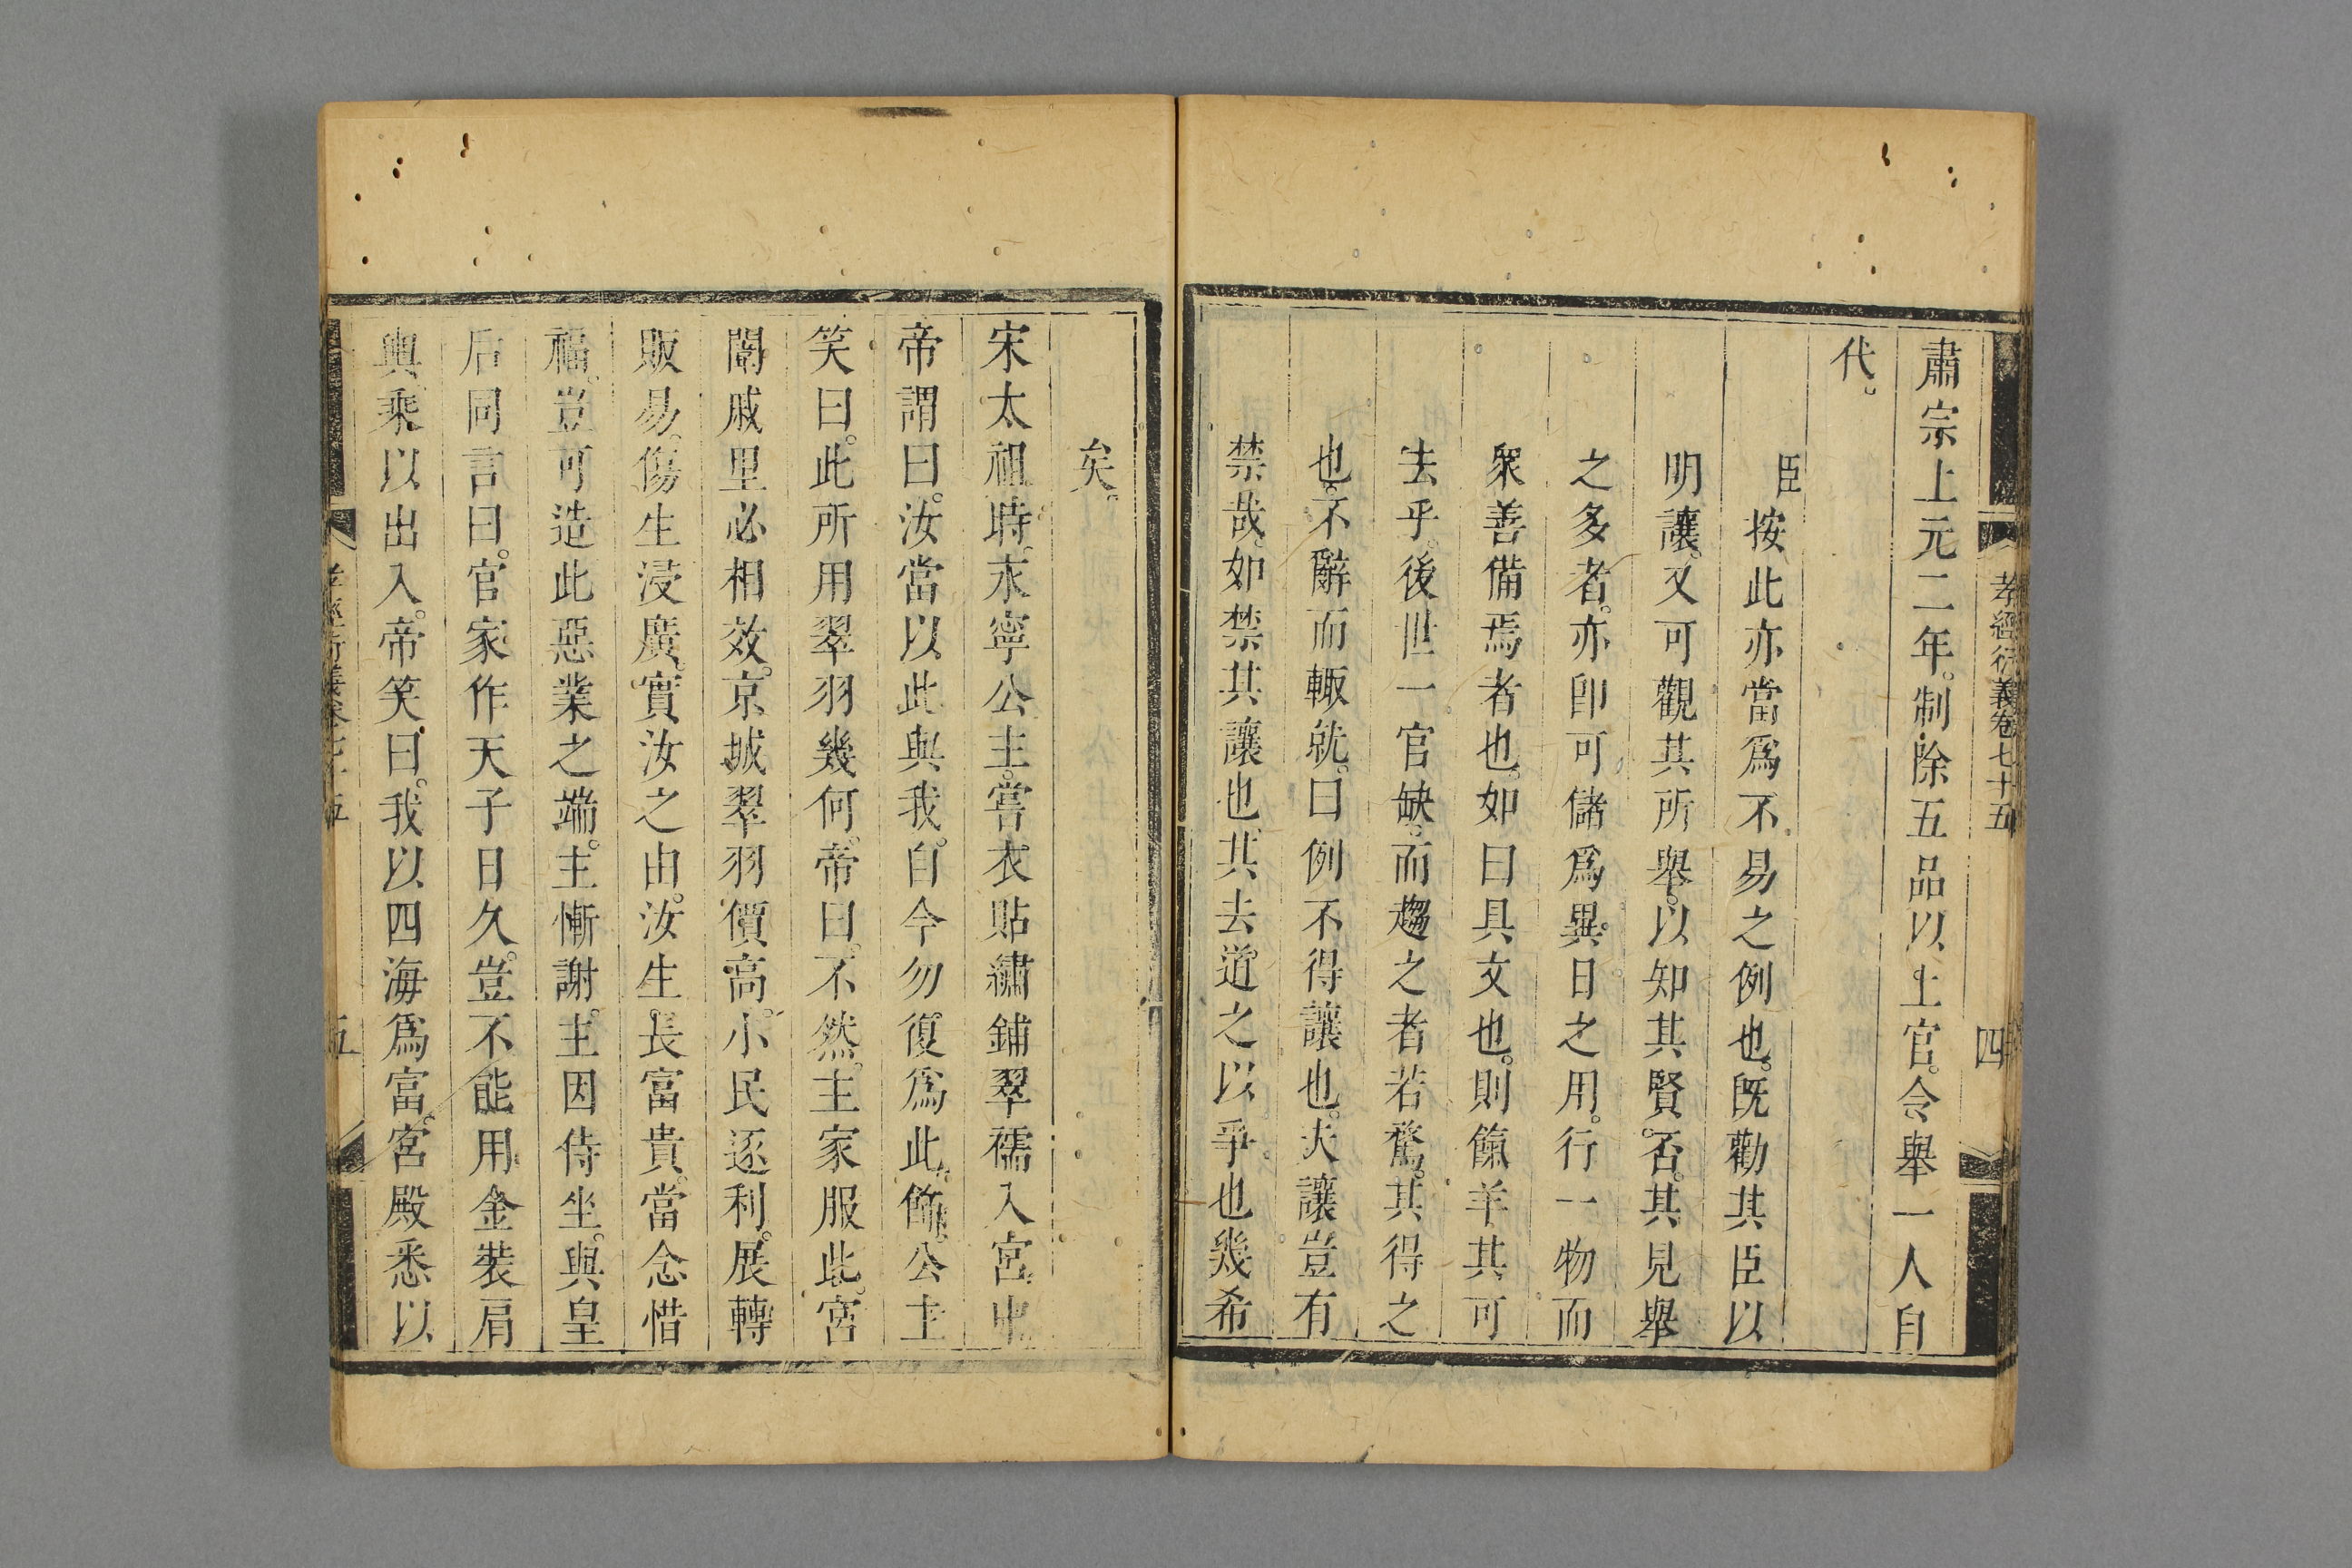 孝經衍義卷七十五
四
肅宗上元二年。制除五品以上官。令舉一人自
代。
臣按此亦當爲不易之例也。既勸其臣以
明讓。又可觀其所舉。以知其賢否。其見舉
之多者。亦卽可儲爲異日之用。行一物而
衆善備焉者也。如曰具文也。則餼羊其可
去乎。後世一官缺。而趨之者若騖。其得之
也。不辭而輙就。曰例不得讓也。夫讓豈有
禁哉。如禁其讓也。其去道之以爭也幾希
矣。
宋太祖時。永寧公主。嘗衣貼繡鋪翠襦入宮中
帝謂曰。汝當以此與我。自今勿復爲此飾。公主
笑曰。此所用翠羽幾何。帝曰。不然。主家服此。宮
闈戚里必相效。京城翠羽價高。小民逐利。展轉
販易。傷生浸廣。實汝之由。汝生長富貴。當念惜
福。豈可造此惡業之端。主慚謝。主因侍坐。與皇
后同言曰。官家作天子日久。豈不能用金裝肩
輿乘以出入。帝笑曰。我以四海爲富。宮殿悉以
五